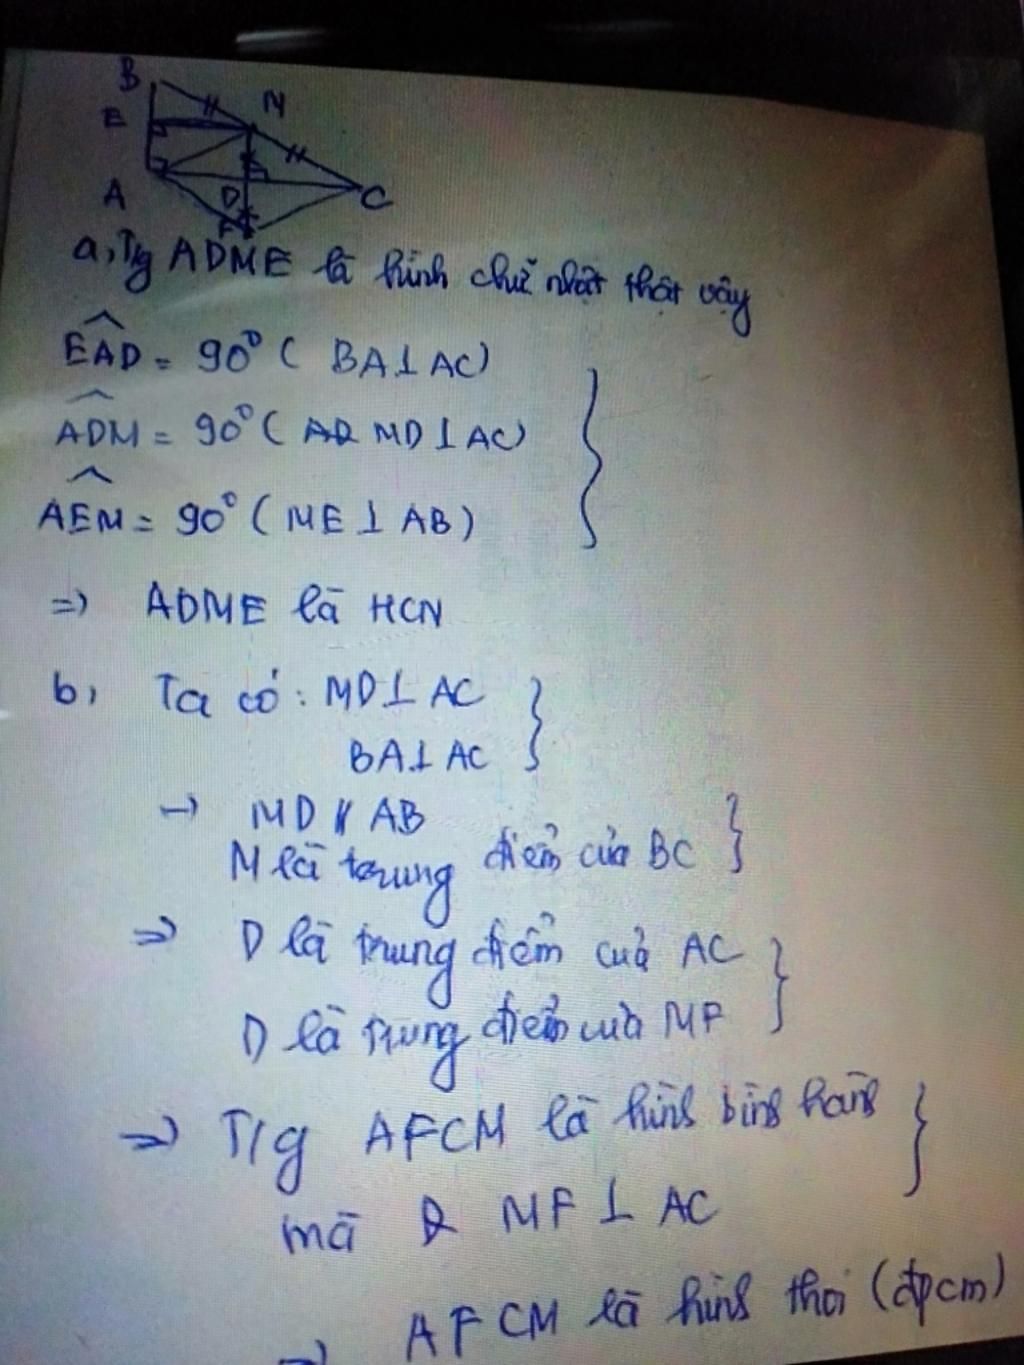 B
M
E
A
D
C
F
a, T/g ADME là hình chữ nhật thật vậy
EAD = 90° ( BA⊥AC)
ADM = 90° ( MD⊥AC)
AEM = 90° ( ME ⊥ AB)
=> ADME là HCN
b, Ta có : MD⊥ AC
BA⊥ AC
→ MD // AB
M là trung điểm của BC
=> D là trung điểm của AC
D là trung điểm của MF
=> T/g AFCM là hình bình hành
mà MF ⊥ AC
=> AFCM là hình thoi (đpcm)